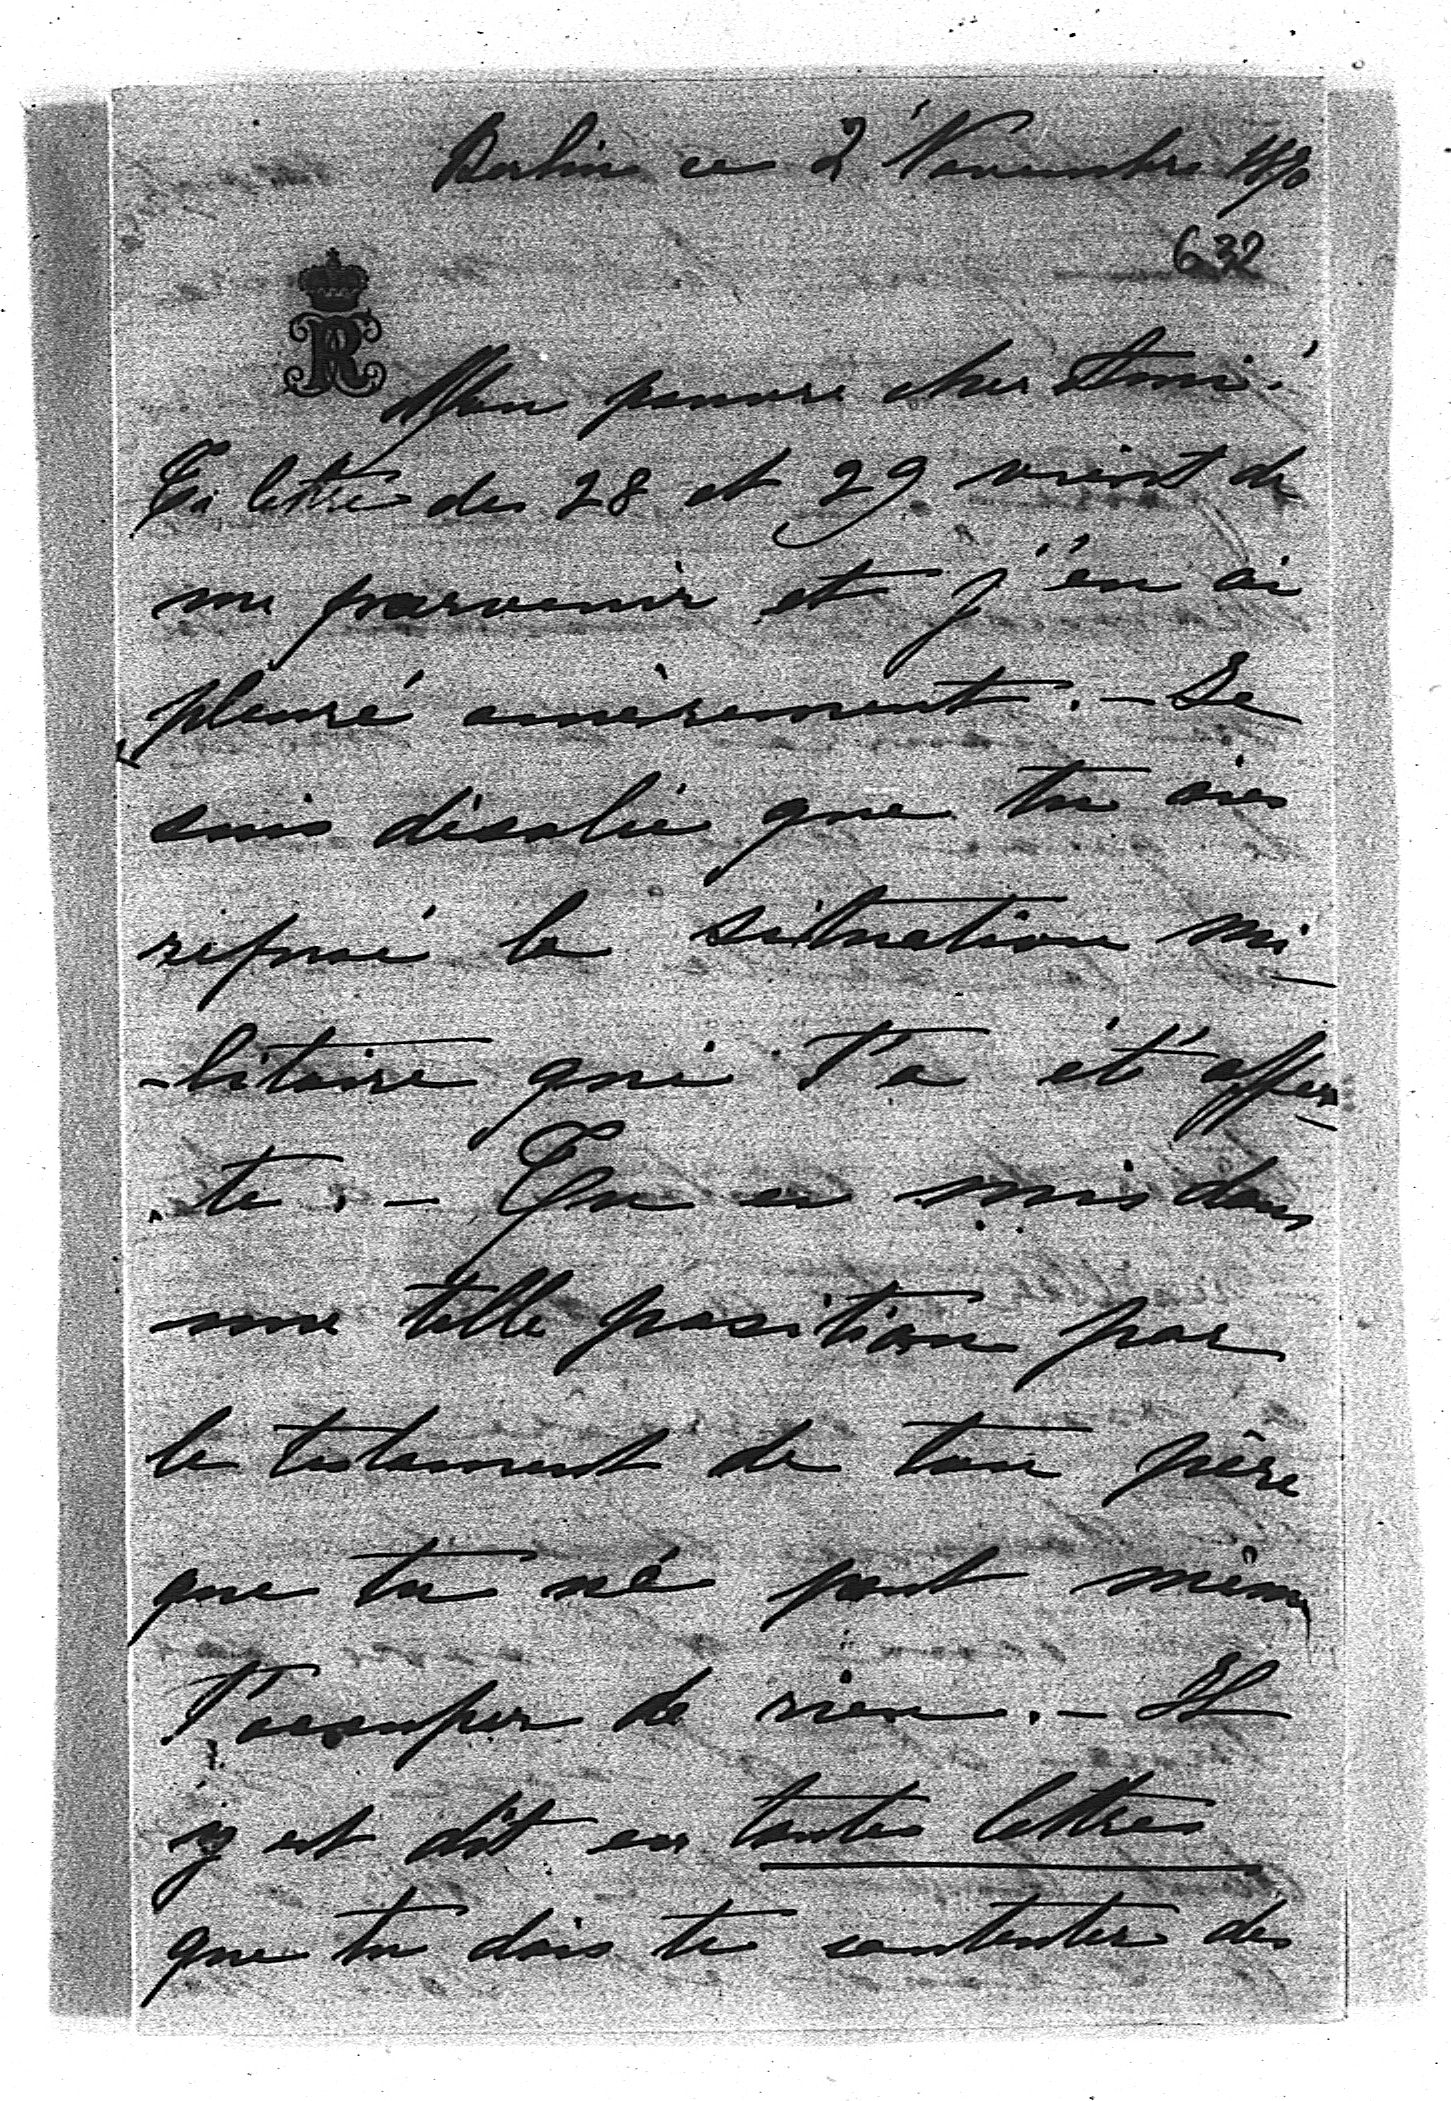 Berlin ce 2 Novembre 1890
632
R
Mon pauvre cher Ami!
Ta lettre des 28 et 29 vient de
me parvenir et j'en ai
pleuré amèrement. – Je
suis désolée que tu aies
refusé la situation mi-
-litaire qui t'a été offer-
te. – Tu es mis dans
une telle position par
le testament de ton père
que tu ne peut même
t'occuper de rien. – Il
y est dit en toutes lettres
que tu dois te contenter des